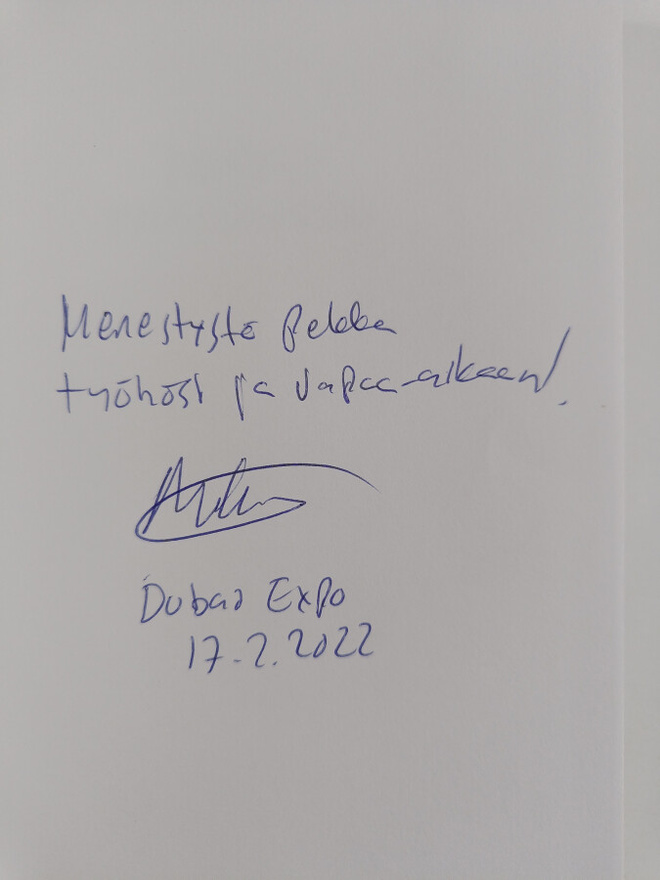 Menestystä Pekka
työhösi ja vapaa-aikaan!
Dubai Expo
17.2.2022